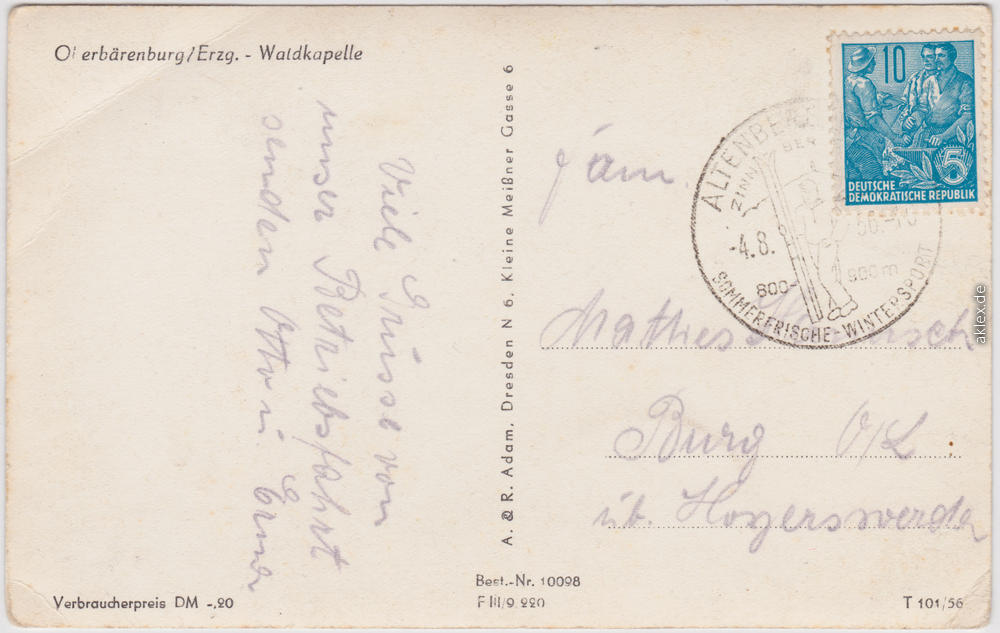 Oberbärenburg/Erzg. - Waldkapelle
Viele Grüsse von
unser Betriebsfahrt
senden Otto u. Erna
A. & R. Adam, Dresden N 6, Kleine Meißner Gasse 6
10
5
DEUTSCHE
DEMOKRATISCHE REPUBLIK
ALTENBE
ZINN
-4.8.
800-
900m
SOMMERFRISCHE-WINTERSPORT
Fam.
Mathies
Burg O/L
üb. Hoyerswerda
Best.-Nr. 10098
F III/9 220
Verbraucherpreis DM -,20
T 101/56
aklex.de